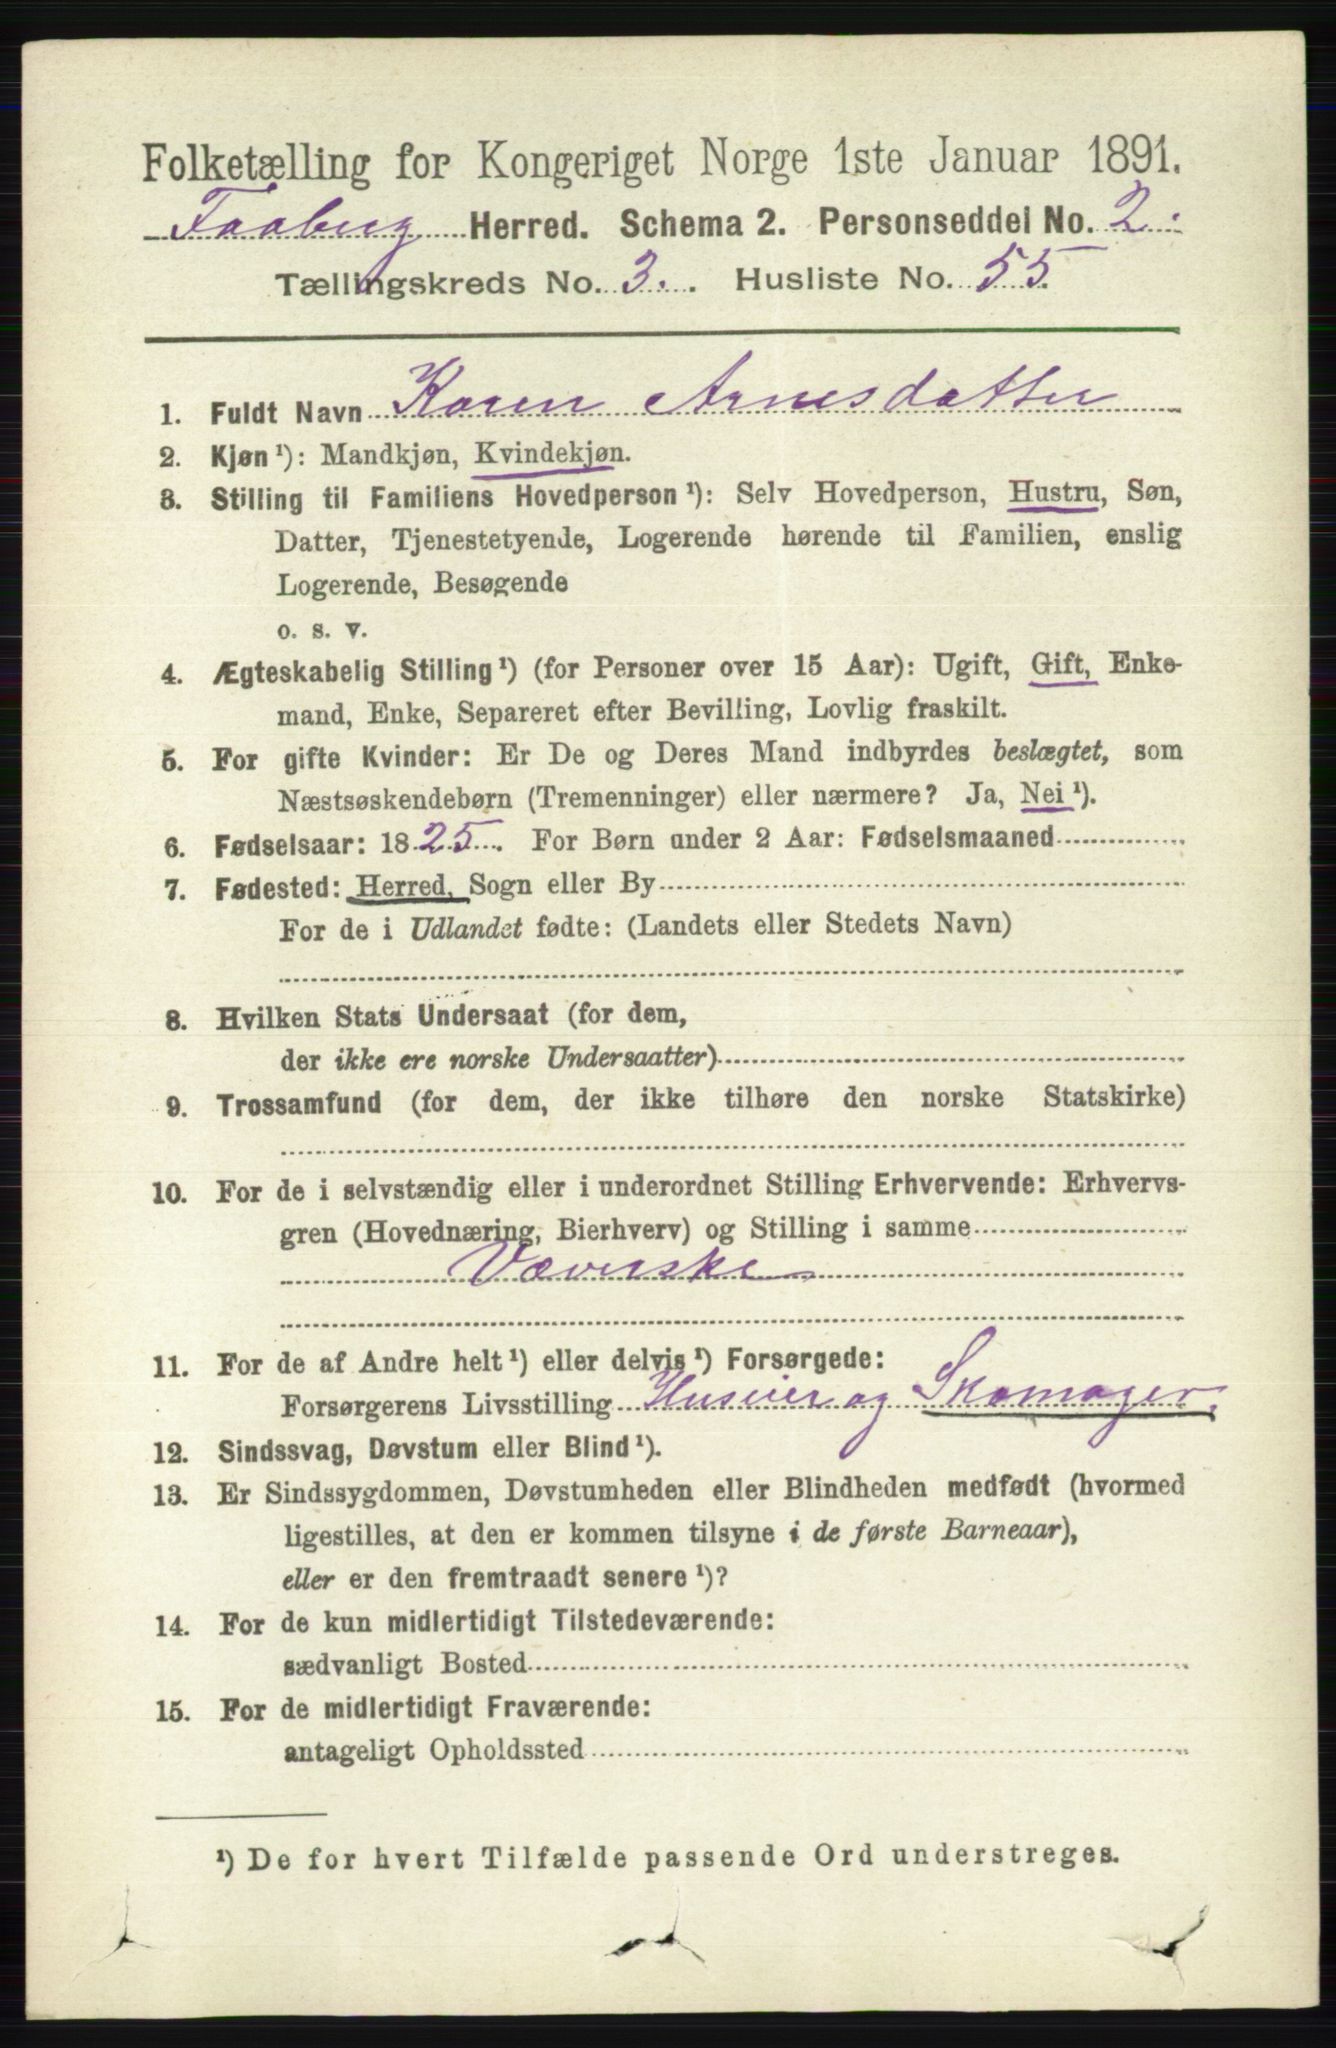 Folketælling for Kongeriget Norge 1ste Januar 1891.
Faaberg Herred. Schema 2. Personseddel No. 2.
Tællingskreds No. 3. Husliste No. 55.
1. Fuldt Navn Karen Arnesdatter
2. Kjøn ¹): Mandkjøn, Kvindekjøn.
3. Stilling til Familiens Hovedperson ¹): Selv Hovedperson, Hustru, Søn,
Datter, Tjenestetyende, Logerende hørende til Familien, enslig
Logerende, Besøgende
o. s. v.
4. Ægteskabelig Stilling ¹) (for Personer over 15 Aar): Ugift, Gift, Enke-
mand, Enke, Separeret efter Bevilling, Lovlig fraskilt.
5. For gifte Kvinder: Er De og Deres Mand indbyrdes beslægtet, som
Næstsøskendebørn (Tremenninger) eller nærmere? Ja, Nei ¹).
6. Fødselsaar: 1825. For Børn under 2 Aar: Fødselsmaaned
7. Fødested: Herred, Sogn eller By
For de i Udlandet fødte: (Landets eller Stedets Navn)
8. Hvilken Stats Undersaat (for dem,
der ikke ere norske Undersaatter)
9. Trossamfund (for dem, der ikke tilhøre den norske Statskirke)
10. For de i selvstændig eller i underordnet Stilling Erhvervende: Erhvervs-
gren (Hovednæring, Bierhverv) og Stilling i samme
Væverske
11. For de af Andre helt ¹) eller delvis ¹) Forsørgede:
Forsørgerens Livsstilling Huseier og Skomager.
12. Sindssvag, Døvstum eller Blind ¹).
13. Er Sindssygdommen, Døvstumheden eller Blindheden medfødt (hvormed
ligestilles, at den er kommen tilsyne i de første Barneaar),
eller er den fremtraadt senere ¹)?
14. For de kun midlertidigt Tilstedeværende:
sædvanligt Bosted
15. For de midlertidigt Fraværende:
antageligt Opholdssted
¹) De for hvert Tilfælde passende Ord understreges.